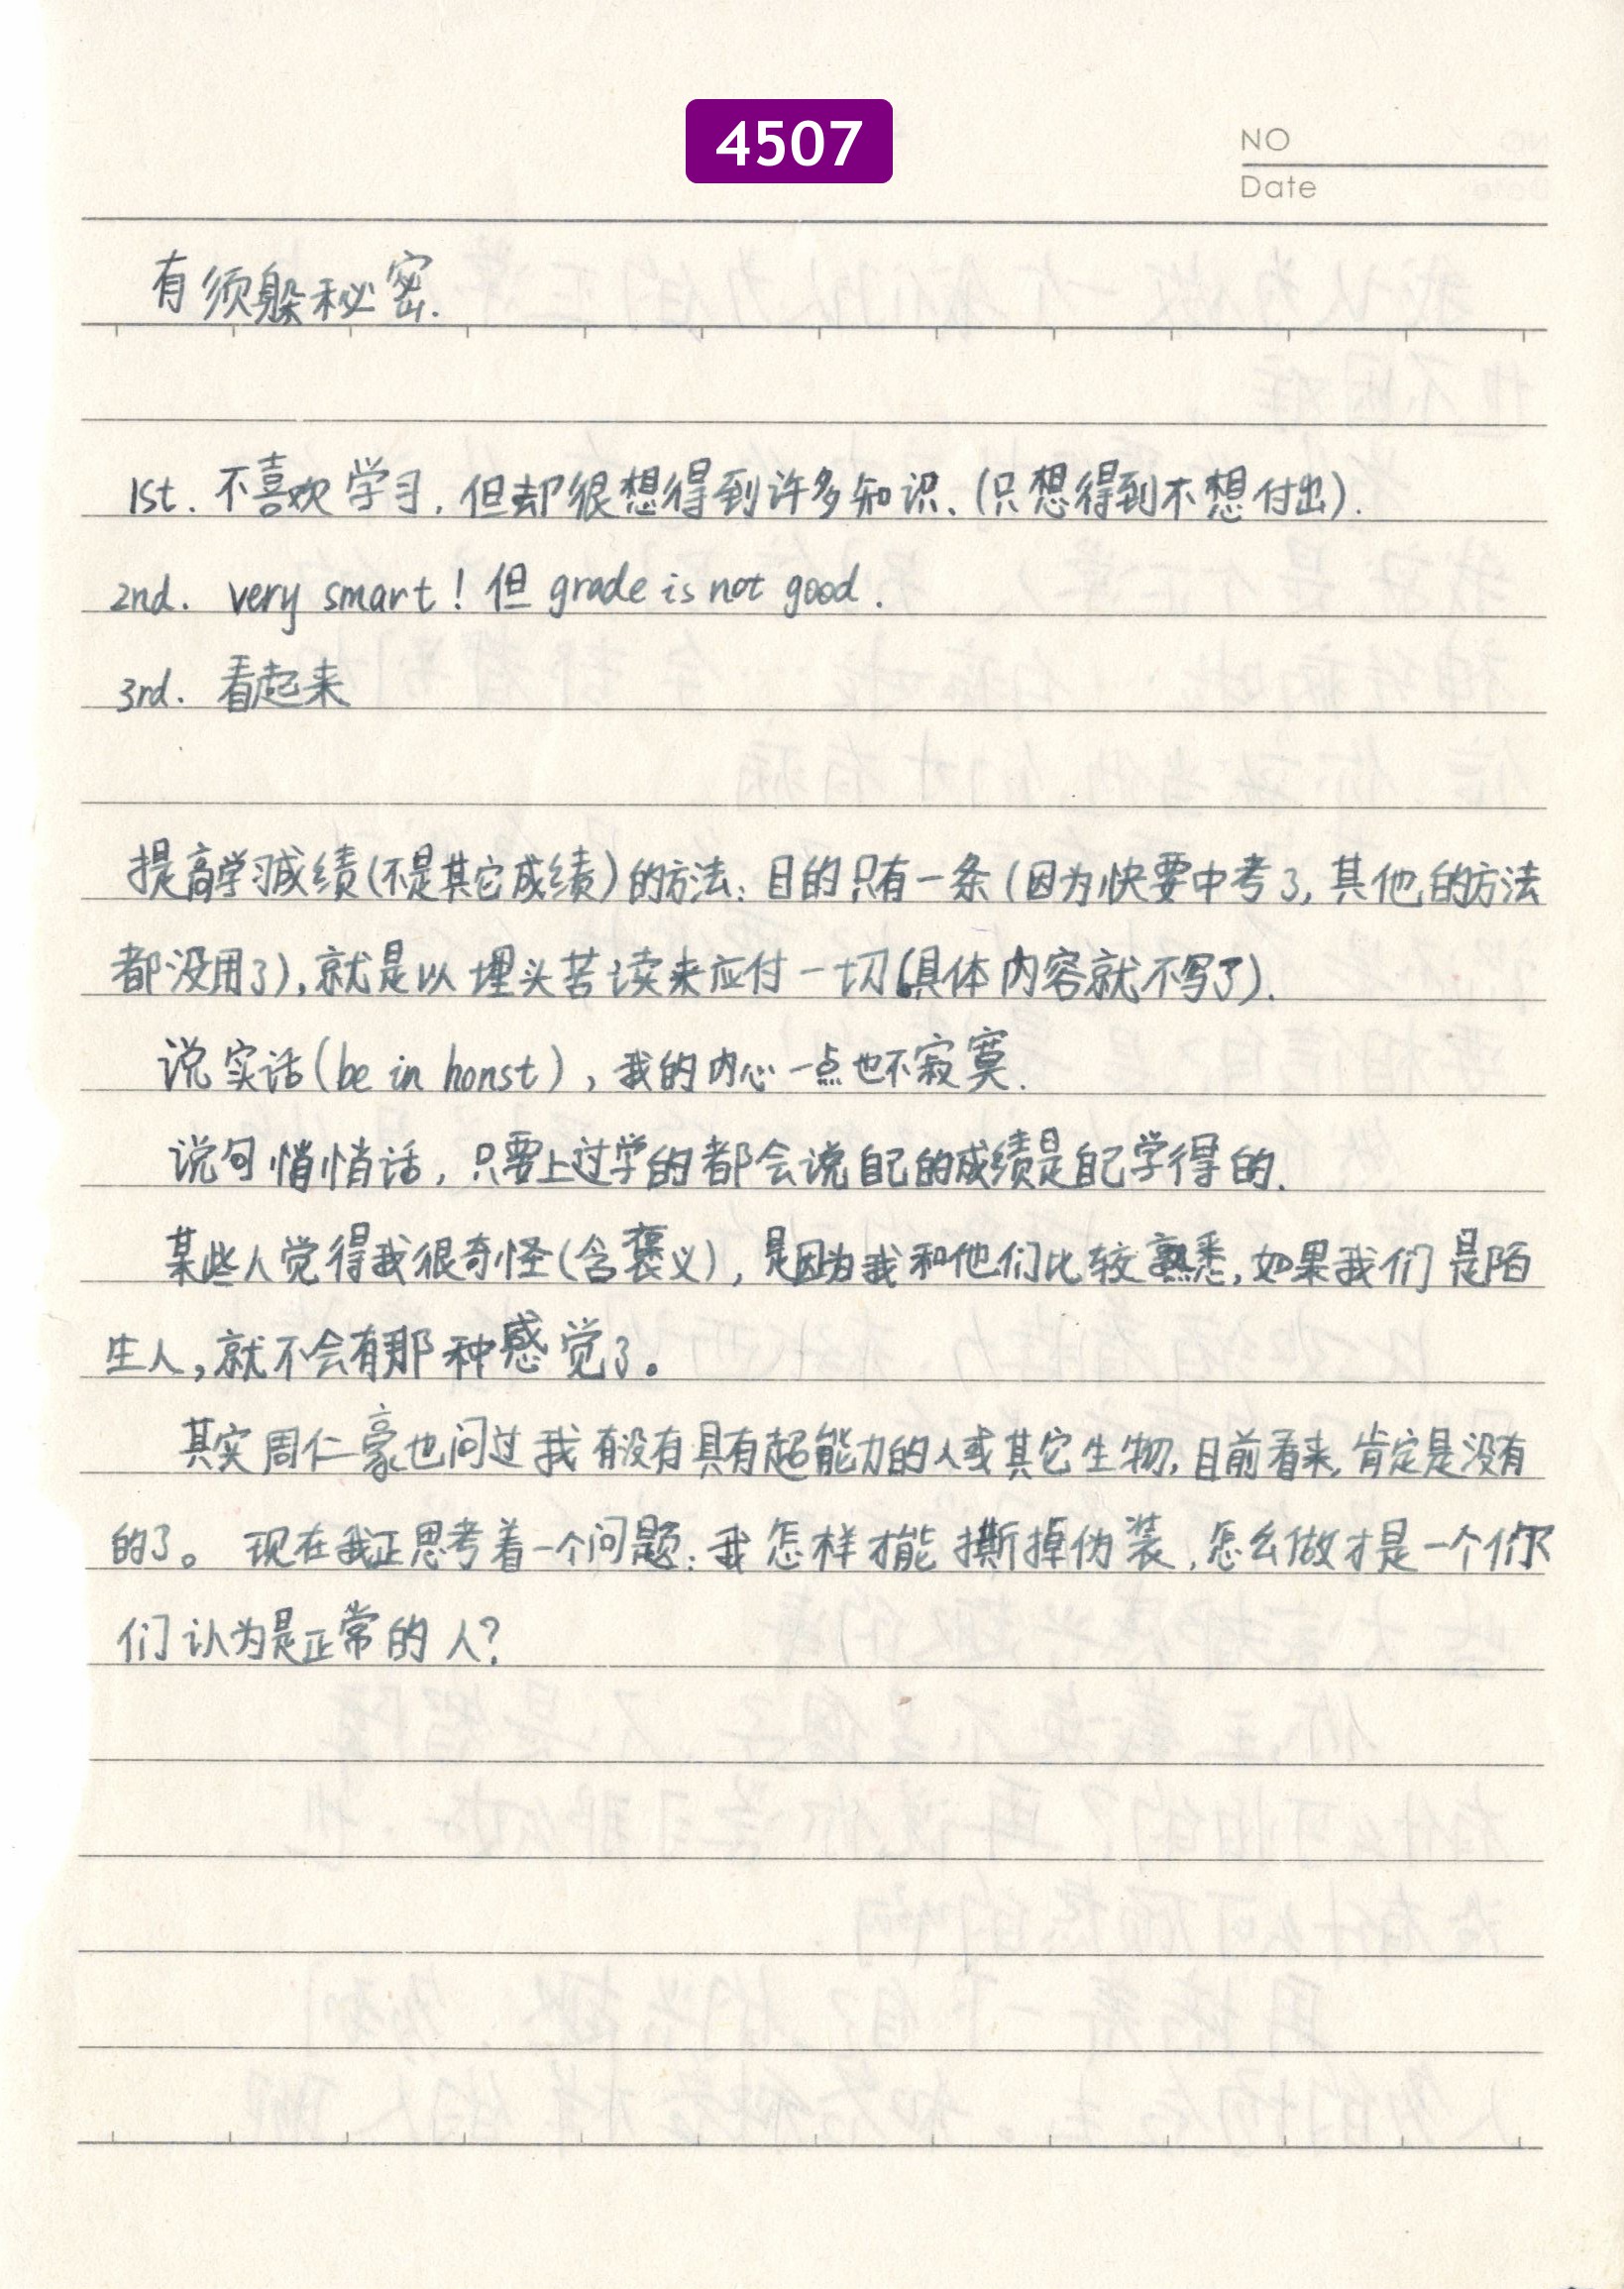 4507
NO
Date
有须躲秘密.
1st. 不喜欢学习, 但却很想得到许多知识、(只想得到不想付出).
2nd. very smart! 但 grade is not good.
3rd. 看起来
提高学习成绩(不是其它成绩)的方法: 目的只有一条(因为快要中考了, 其他的方法
都没用了), 就是以埋头苦读来应付一切(具体内容就不写了).
说实话(be in honst), 我的内心一点也不寂寞.
说句悄悄话, 只要上过学的都会说自己的成绩是自己学得的.
某些人觉得我很奇怪(含褒义), 是因为我和他们比较熟悉, 如果我们是陌
生人, 就不会有那种感觉了。
其实周仁豪也问过我有没有具有超能力的人或其它生物, 目前看来, 肯定是没有
的了。 现在我正思考着一个问题: 我怎样才能撕掉伪装, 怎么做才是一个你
们认为是正常的人?